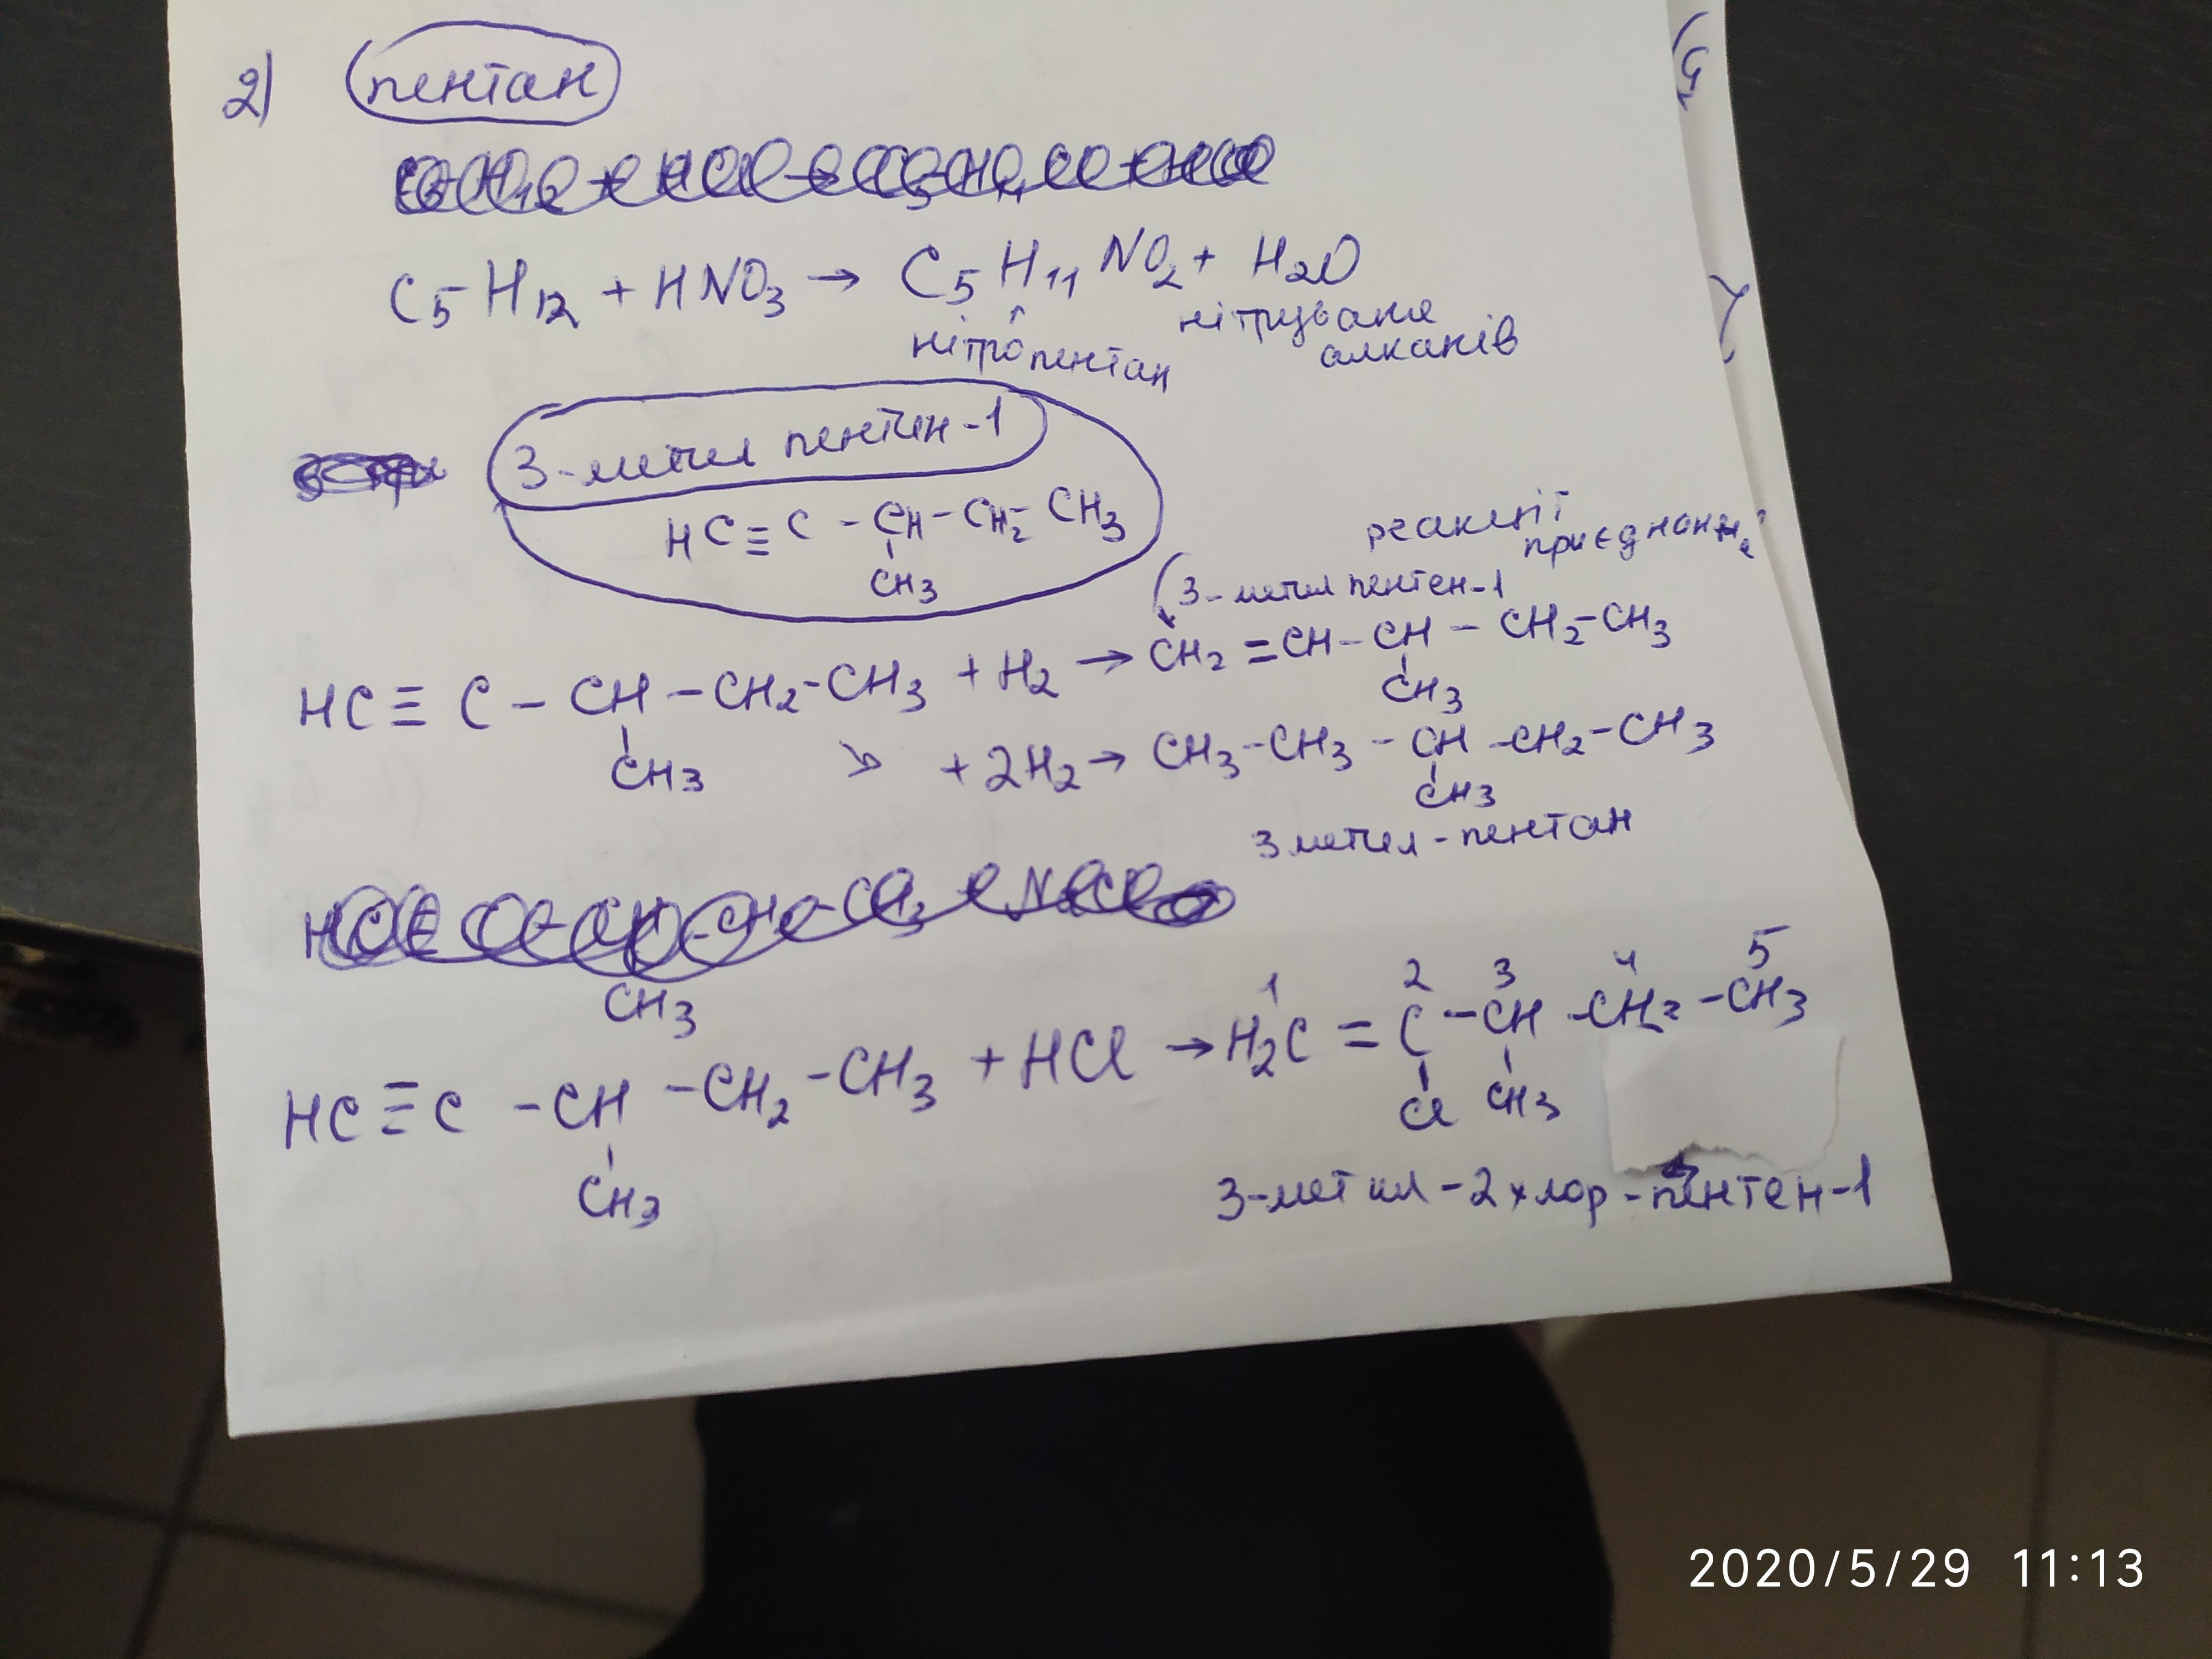 2) пентан
C₅H₁₂ + HNO₃ → C₅H₁₁NO₂ + H₂O
нітропентан
нітруваня
алканів
3-метил пентин-1
HC≡C-CH-CH₂-CH₃
CH₃
реакції
приєднання
3-метил пентен-1
HC≡C-CH-CH₂-CH₃ + H₂ → CH₂=CH-CH-CH₂-CH₃
CH₃
CH₃
+ 2H₂ → CH₃-CH₃-CH-CH₂-CH₃
CH₃
3 метил-пентан
CH₃
1 2 3 4 5
HC≡C-CH-CH₂-CH₃ + HCl → H₂C=C-CH-CH₂-CH₃
Cl CH₃
CH₃
3-метил-2 хлор-пентен-1
2020/5/29 11:13